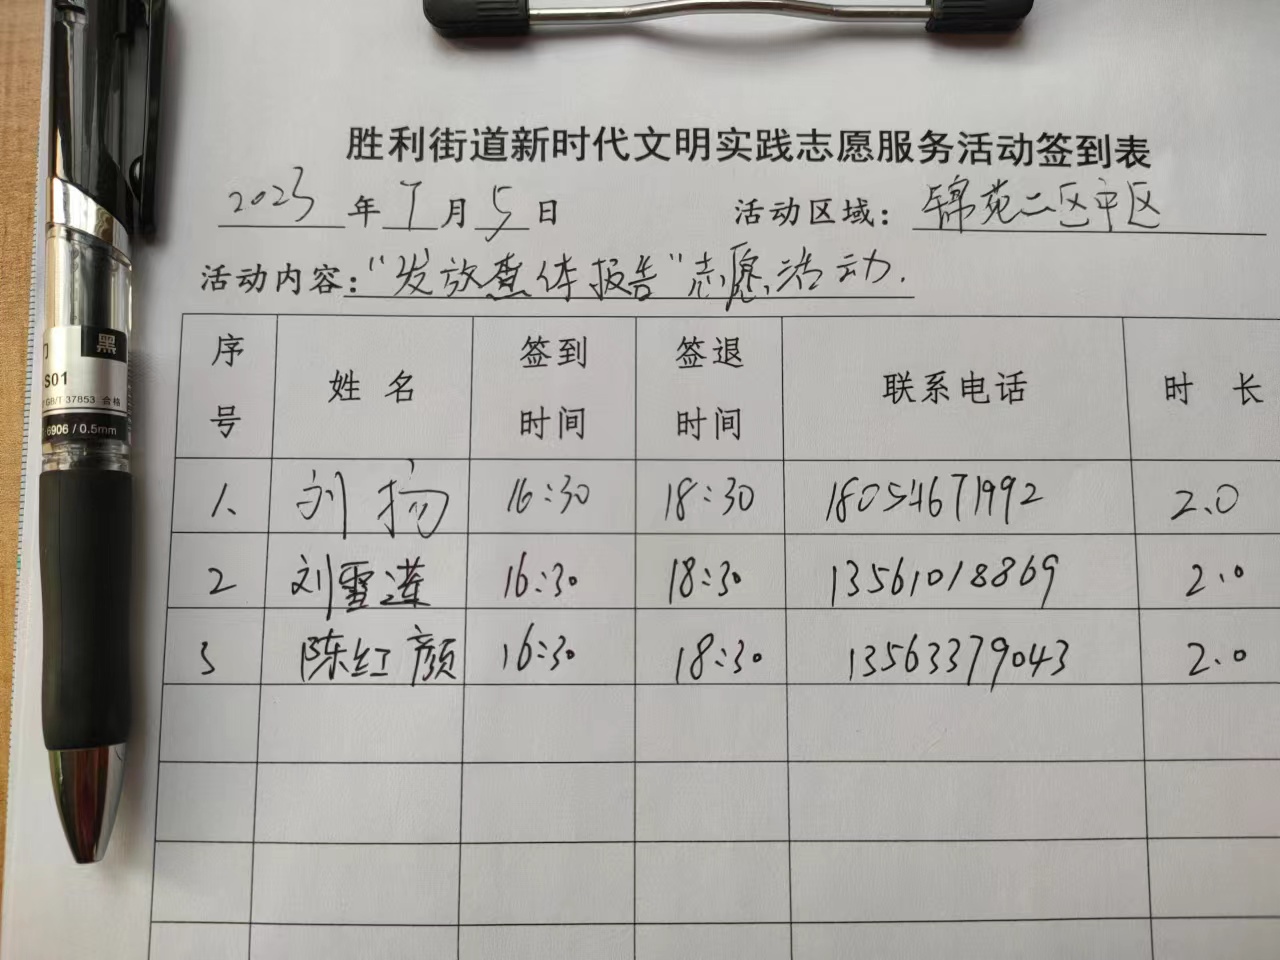 胜利街道新时代文明实践志愿服务活动签到表
2023 年 7 月 5 日 活动区域：锦苑二区中区
活动内容："发放查体报告"志愿活动.
序号 姓名 签到时间 签退时间 联系电话 时长
1、 刘扬 16:30 18:30 18054671992 2.0
2 刘雪莲 16:30 18:30 13561018869 2.0
3 陈红颜 16:30 18:30 13563379043 2.0
黑
S01
GB/T 37853 合格
6906 / 0.5mm